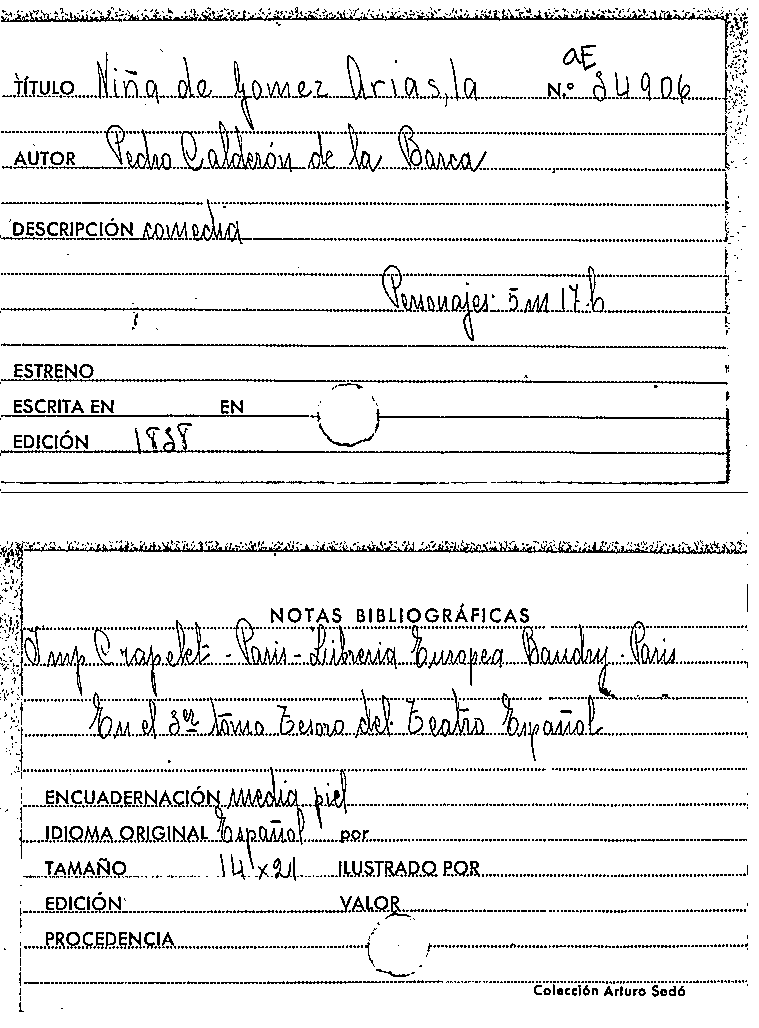 aE
TÍTULO Niña de Gomez Arias, la N.º 34906
AUTOR Pedro Calderón de la Barca
DESCRIPCIÓN comedia
Personajes: 5 m 17 h
ESTRENO
ESCRITA EN EN
EDICIÓN 1838
NOTAS BIBLIOGRÁFICAS
Imp Crapelet - Paris - Libreria Europea Baudry - Paris
En el 3er tomo Tesoro del Teatro Español
ENCUADERNACIÓN media piel
IDIOMA ORIGINAL Español por
TAMAÑO 14 x 21 ILUSTRADO POR
EDICIÓN VALOR
PROCEDENCIA
Colección Arturo Sedó